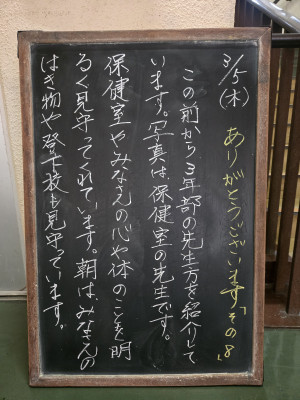 3/5(木) ありがとうございます「その8」
この前から3年部の先生方を紹介して
います。写真は、保健室の先生です。
保健室やみなさんの心や体のことを明
るく見守ってくれています。朝は、みなさんの
はき物や登下校も見守っています。